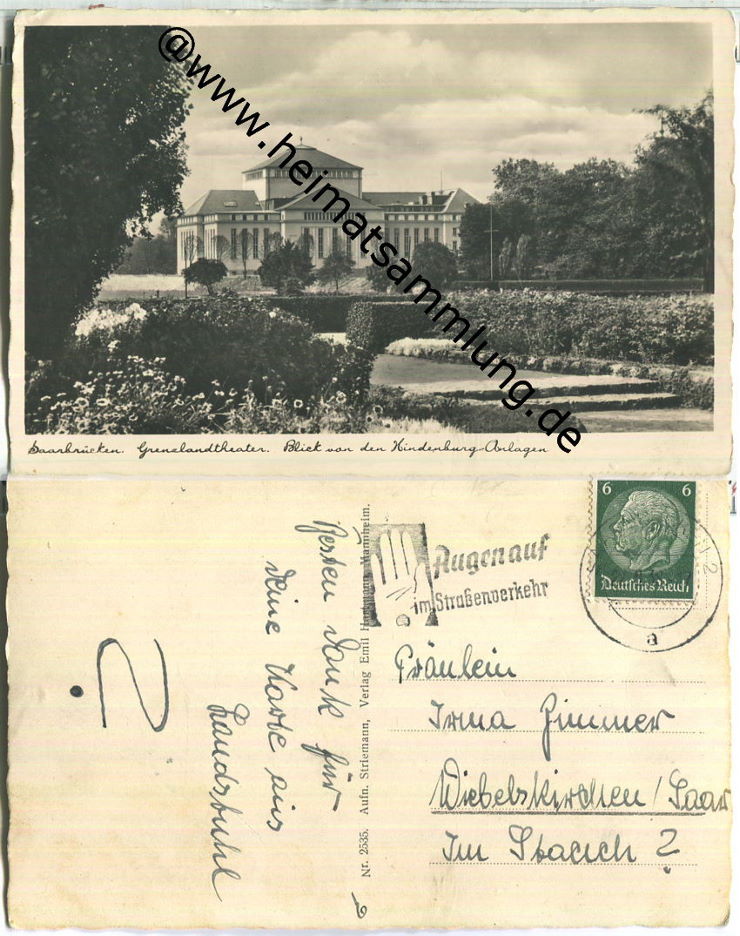 @www.heimatsammlung.de
Saarbrücken. Grenzlandtheater. Blick von den Hindenburg-Anlagen
Besten Dank für
deine Karte aus
Landstuhl
Nr. 2535. Aufn. Striemann, Verlag Emil Hartmann, Mannheim.
Augen auf
im Straßenverkehr
6 6
Deutsches Reich
2
a
Fräulein
Irma Zimmer
Wiebelskirchen / Saar
Im Stauch 2